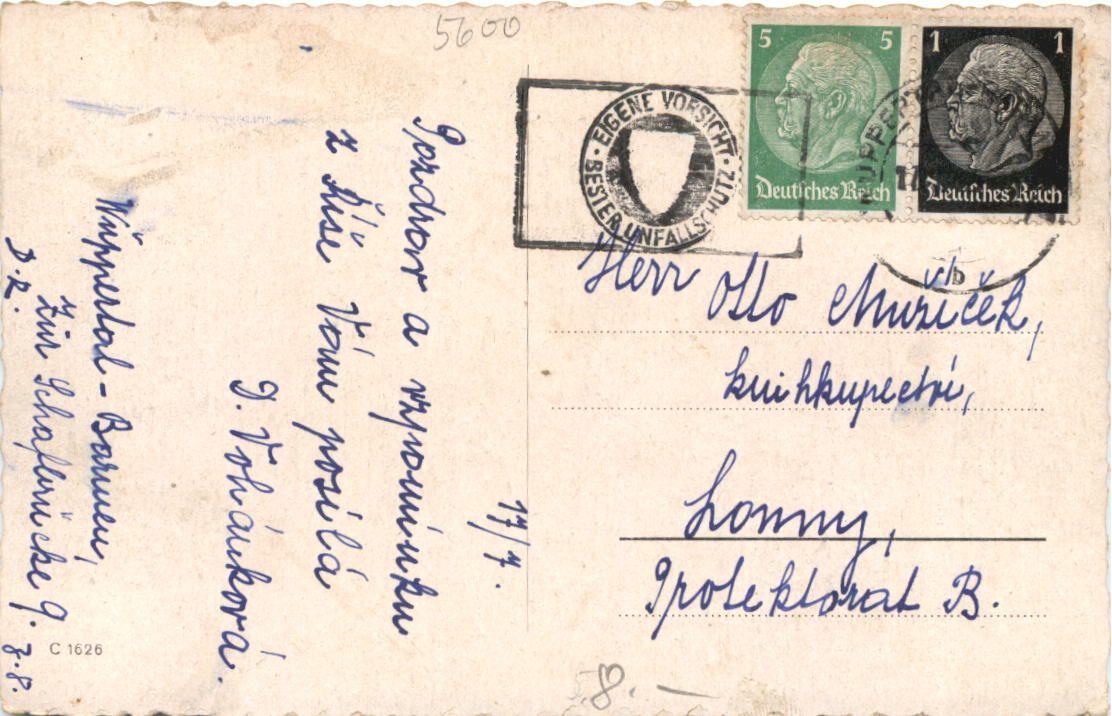 5600
5 5
Deutsches Reich
1 1
Deutsches Reich
EIGENE VORSICHT · BESTER UNFALLSCHUTZ ·
WUPPERTAL
17
b
17/7.
Pozdrav a vzpomínku
z Říše Vám posílá
D. Vohánková.
Wuppertal-Barmen,
Zur Schafbrücke 9.
D.Z. 7.8.
Herr Otto Muzíček,
knihkupectví,
Lomny,
Protektorat B.
C 1626
8. —